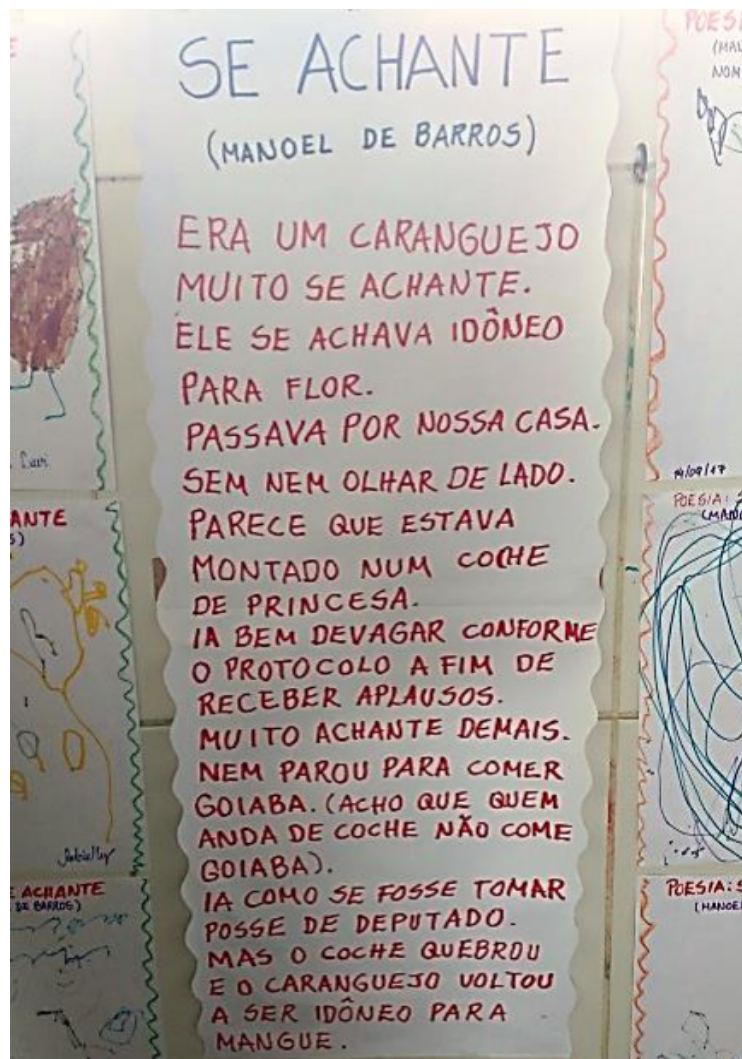 SE ACHANTE
(MANOEL DE BARROS)
ERA UM CARANGUEJO
MUITO SE ACHANTE.
ELE SE ACHAVA IDÔNEO
PARA FLOR.
PASSAVA POR NOSSA CASA.
SEM NEM OLHAR DE LADO.
PARECE QUE ESTAVA
MONTADO NUM COCHE
DE PRINCESA.
IA BEM DEVAGAR CONFORME
O PROTOCOLO A FIM DE
RECEBER APLAUSOS.
MUITO ACHANTE DEMAIS.
NEM PAROU PARA COMER
GOIABA. (ACHO QUE QUEM
ANDA DE COCHE NÃO COME
GOIABA).
IA COMO SE FOSSE TOMAR
POSSE DE DEPUTADO.
MAS O COCHE QUEBROU
E O CARANGUEJO VOLTOU
A SER IDÔNEO PARA
MANGUE.
ACHANTE
DE BARROS)
14/09/17
POESIA:
POESIA: S
(MANOEL